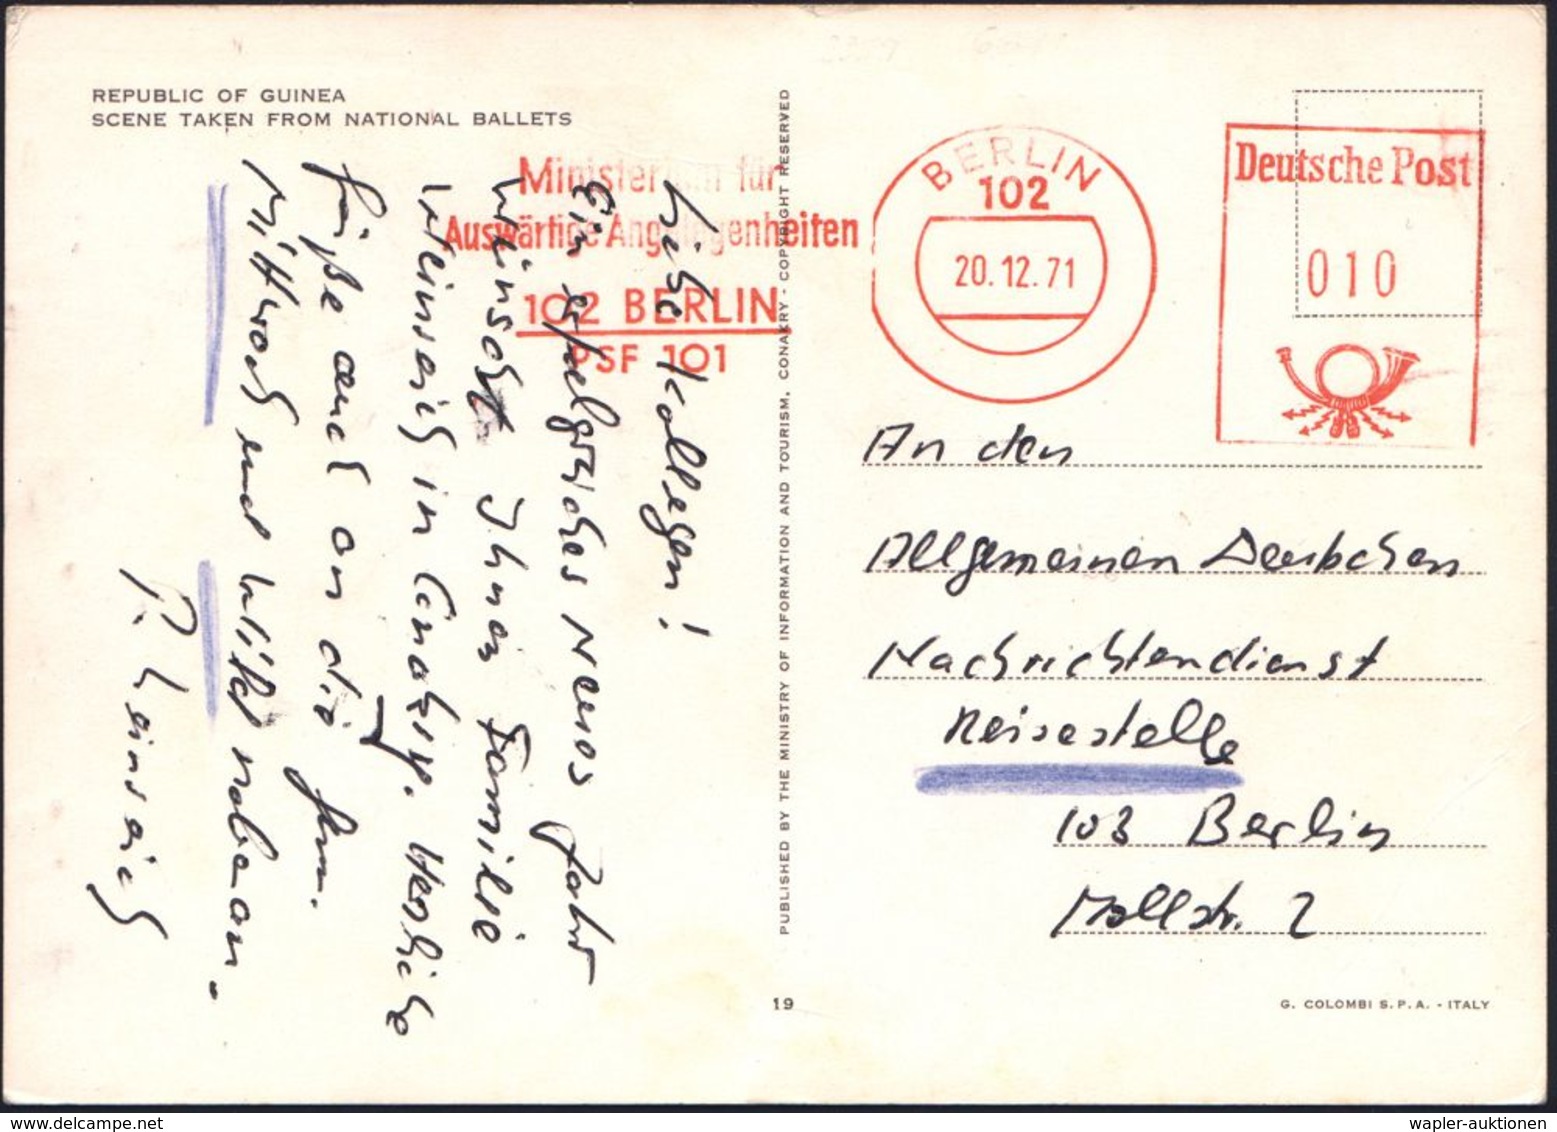 REPUBLIC OF GUINEA
SCENE TAKEN FROM NATIONAL BALLETS
Ministerium für
Auswärtige Angelegenheiten
102 BERLIN
PSF 101
BERLIN
102
20.12.71
Deutsche Post
010
Liebe Kollegen!
Ein erfolgreiches Neues Jahr
wünscht Ihnen Familie
in Conakry. Herzliche
Grüße auch an die
und
An den
Allgemeinen Deutschen
Nachrichtendienst
Reisestelle
103 Berlin
Mollstr. 2
PUBLISHED BY THE MINISTRY OF INFORMATION AND TOURISM, CONAKRY - COPYRIGHT RESERVED
19
G. COLOMBI S.P.A. - ITALY
wapler-auktionen